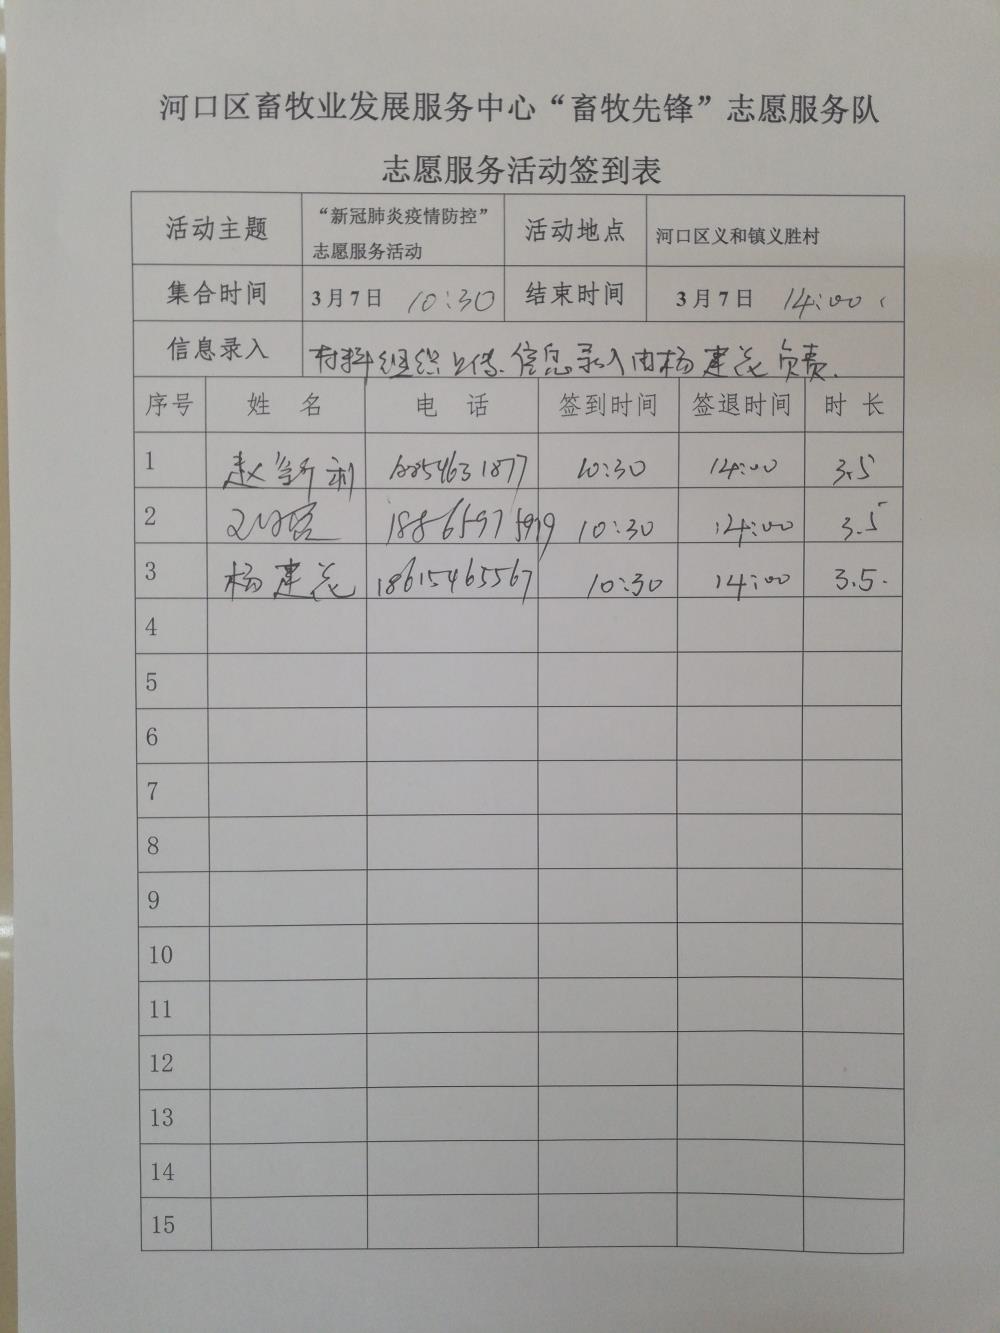 河口区畜牧业发展服务中心“畜牧先锋”志愿服务队
志愿服务活动签到表
活动主题 “新冠肺炎疫情防控” 活动地点 河口区义和镇义胜村
志愿服务活动
集合时间 3月7日 10:30 结束时间 3月7日 14:00
信息录入 材料组织上传.信息录入由杨建花负责.
序号 姓 名 电 话 签到时间 签退时间 时 长
1 赵新利 10:30 14:00 3.5
2 18865975979 10:30 14:00 3.5
3 杨建花 18615465567 10:30 14:00 3.5.
4
5
6
7
8
9
10
11
12
13
14
15